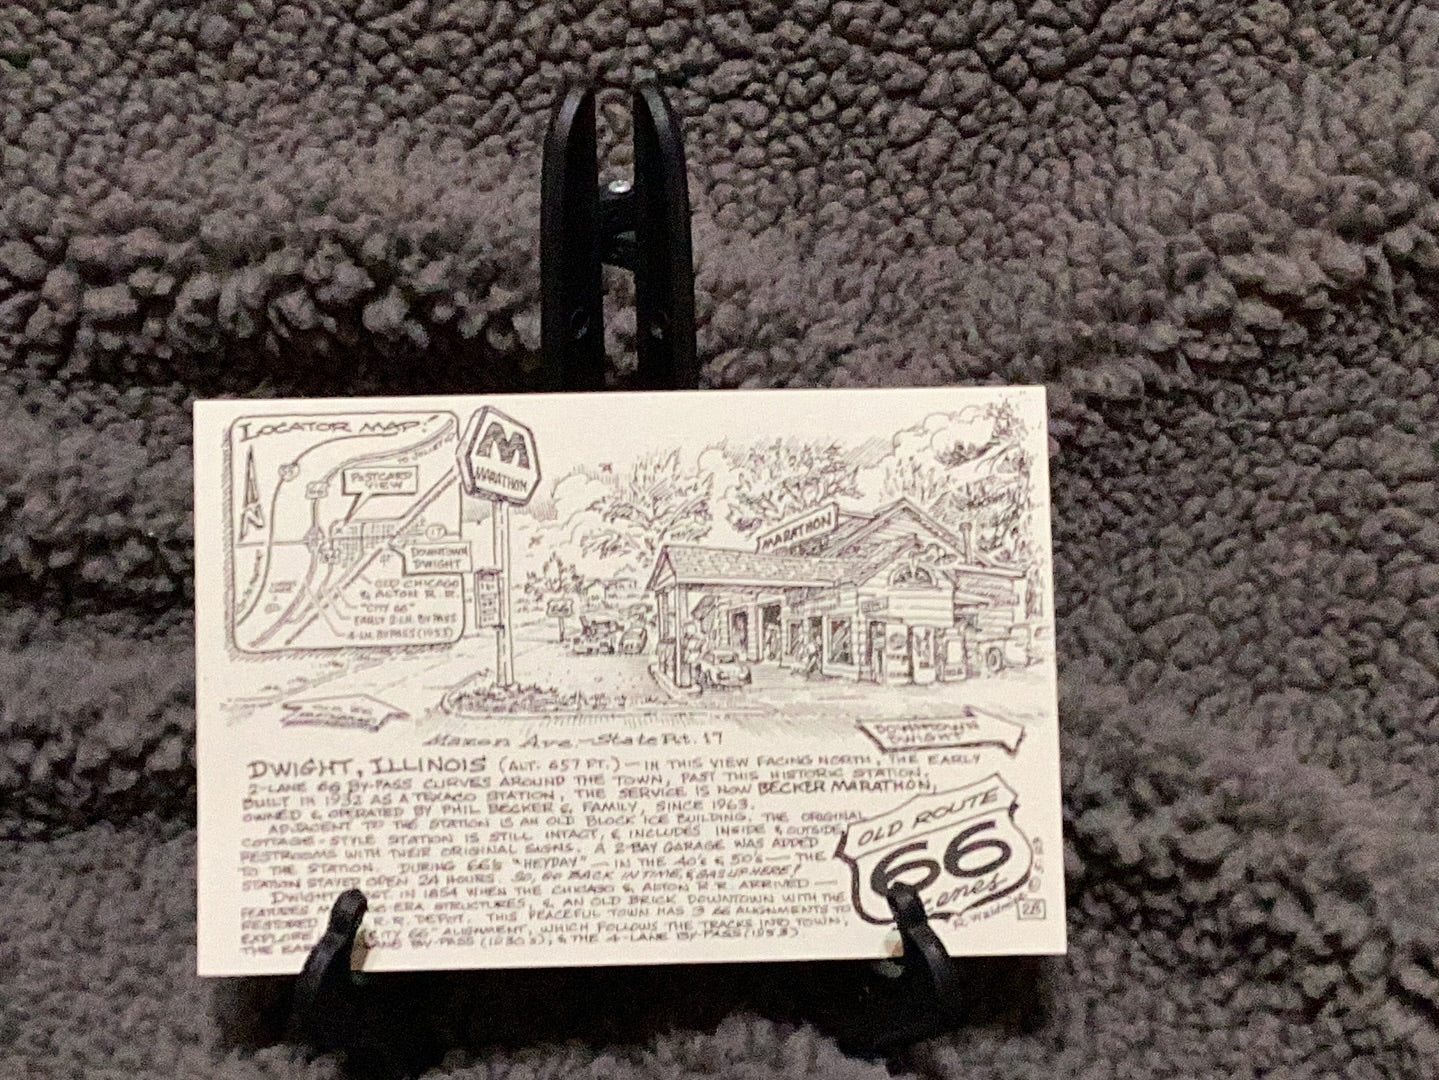 LOCATOR MAP:
POSTCARD
VIEW
17
DOWNTOWN
DWIGHT
OLD CHICAGO
& ALTON R.R.
"CITY 66"
EARLY 2-LN. BYPASS
4-LN. BYPASS (1953)
M
MARATHON
MARATHON
66
Mazon Ave.~State Rt. 17
DOWNTOWN
DWIGHT
DWIGHT, ILLINOIS (ALT. 657 FT.) — IN THIS VIEW FACING NORTH, THE EARLY
2-LANE 66 BY-PASS CURVES AROUND THE TOWN, PAST THIS HISTORIC STATION.
BUILT IN 1932 AS A TEXACO STATION, THE SERVICE IS NOW BECKER MARATHON,
OWNED & OPERATED BY PHIL BECKER & FAMILY, SINCE 1963.
ADJACENT TO THE STATION IS AN OLD BLOCK ICE BUILDING. THE ORIGINAL
COTTAGE-STYLE STATION IS STILL INTACT, & INCLUDES INSIDE & OUTSIDE
RESTROOMS WITH THEIR ORIGINAL SIGNS. A 2-BAY GARAGE WAS ADDED
TO THE STATION. DURING 66'S "HEYDAY" — IN THE 40'S & 50'S — THE
STATION STAYED OPEN 24 HOURS. SO, GO BACK IN TIME, & GAS UP HERE!
DWIGHT, EST. IN 1854 WHEN THE CHICAGO & ALTON R.R. ARRIVED —
FEATURES ERA STRUCTURES, & AN OLD BRICK DOWNTOWN WITH THE
RESTORED R.R. DEPOT. THIS PEACEFUL TOWN HAS 3 66 ALIGNMENTS TO
EXPLORE CITY 66" ALIGNMENT, WHICH FOLLOWS THE TRACKS INTO TOWN;
THE EAR LANE BY-PASS (1930'S), & THE 4-LANE BY-PASS (1953)
OLD ROUTE
66
cenes
© R. Waldmire
28